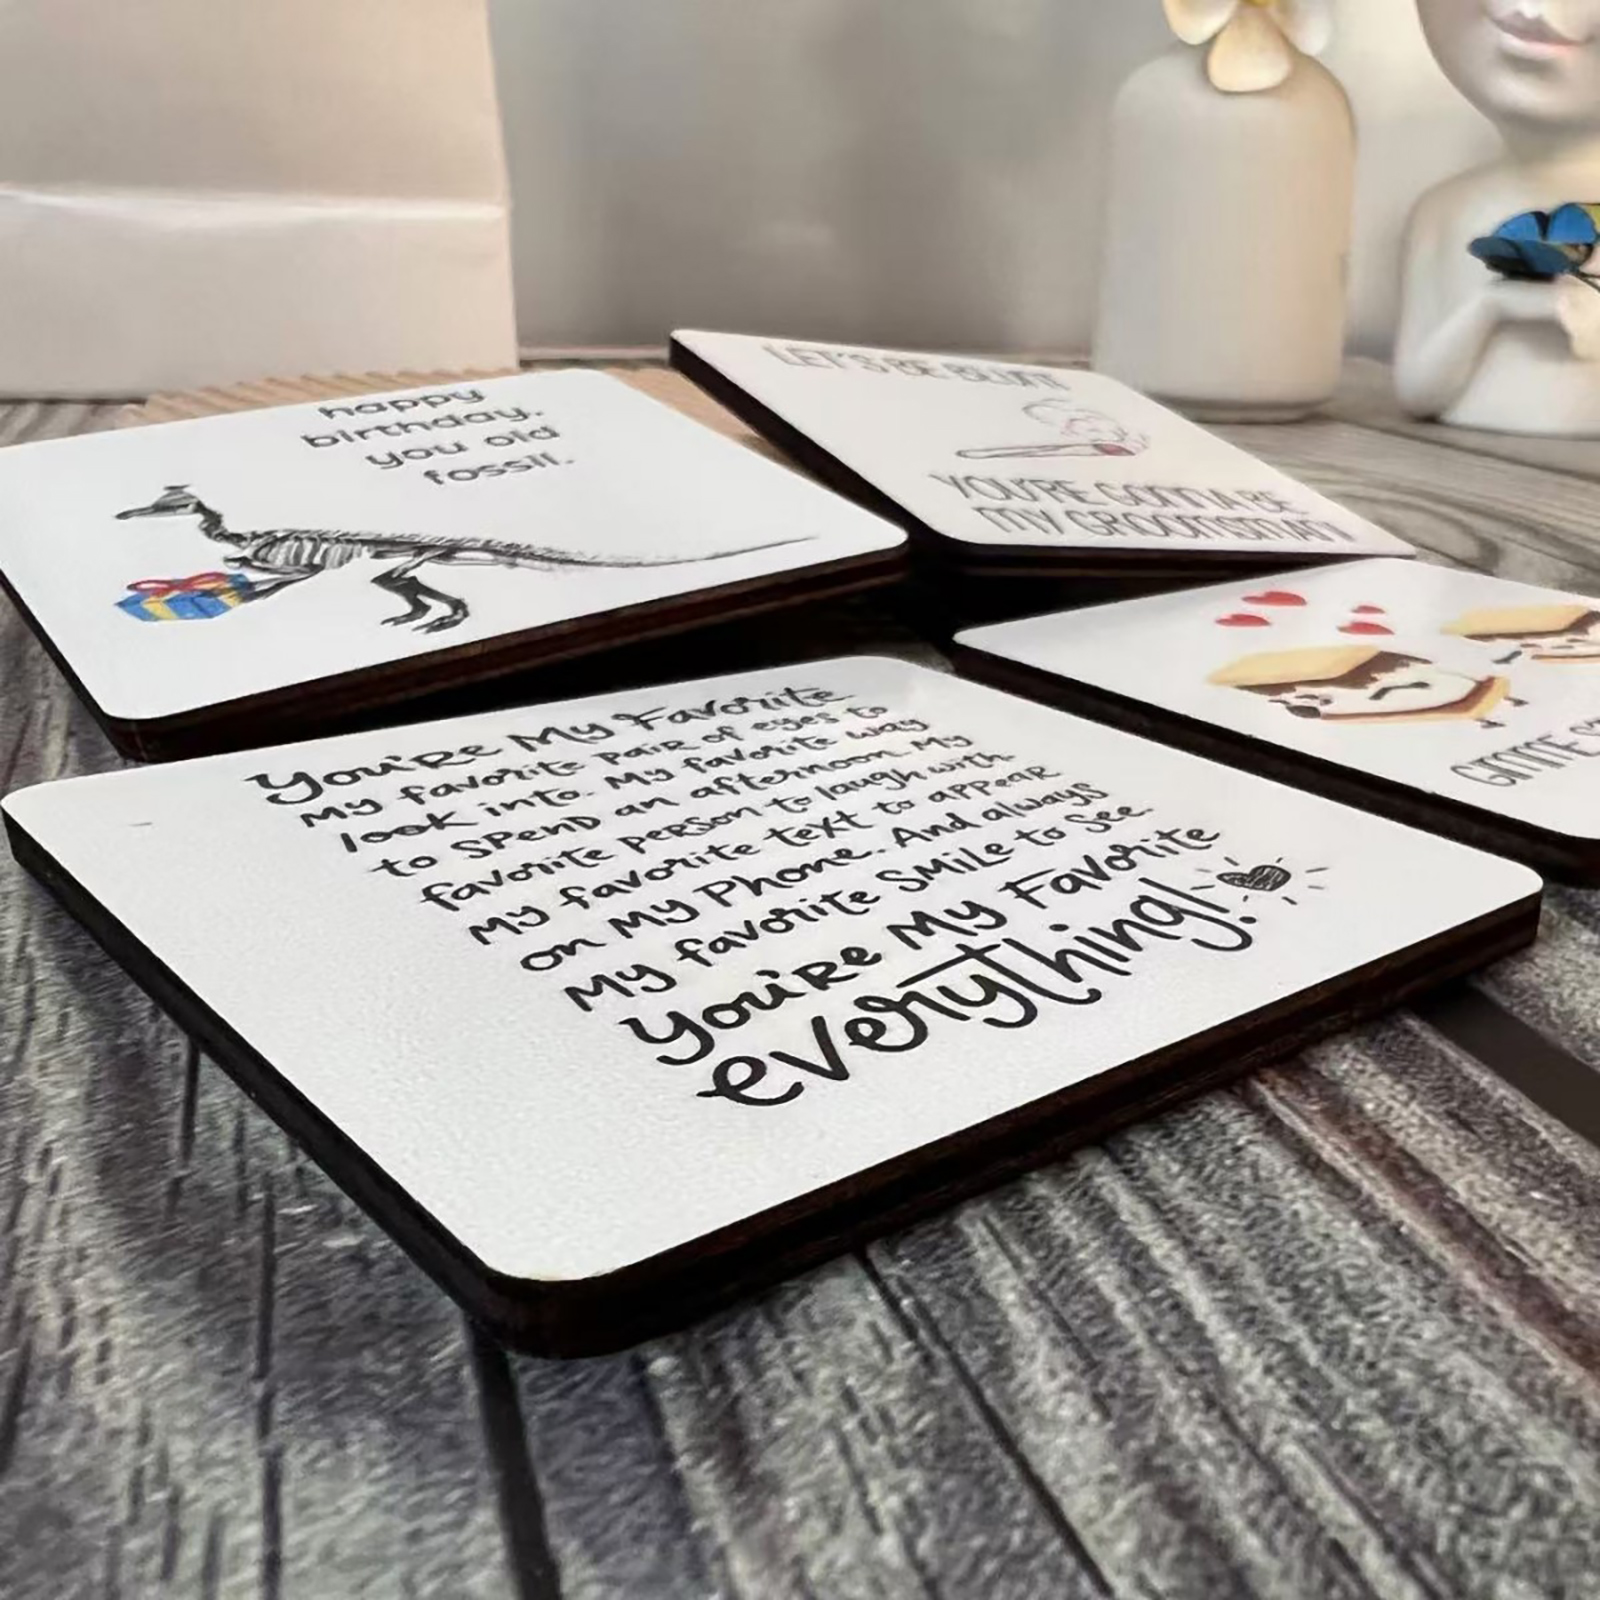 happy
birthday,
you old
fossil.
LET'S BE BLUNT
YOU'RE GONNA BE
MY GROOMSMAN
You're My Favorite
My favorite pair of eyes to
look into. My favorite way
to spend an afternoon. My
favorite person to laugh with.
My favorite text to appear
on my phone. And always
My favorite smile to see.
You're My Favorite
everything!